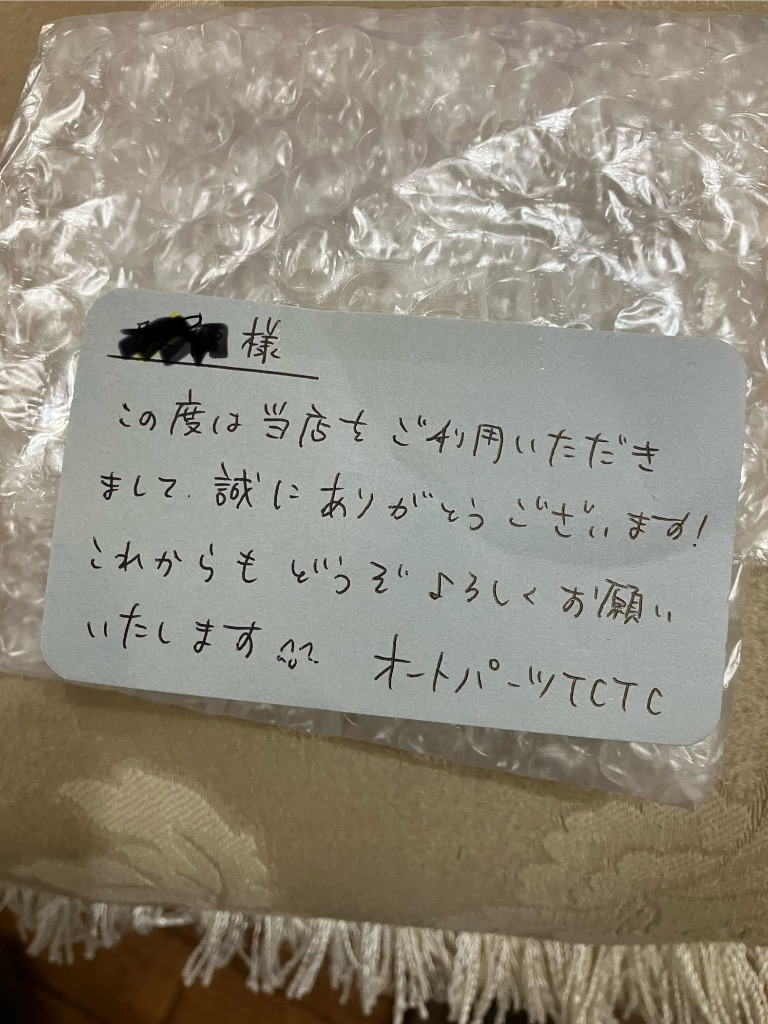 様
この度は当店をご利用いただき
まして、誠にありがとうございます!
これからもどうぞよろしくお願い
いたします^^ オートパーツTCTC